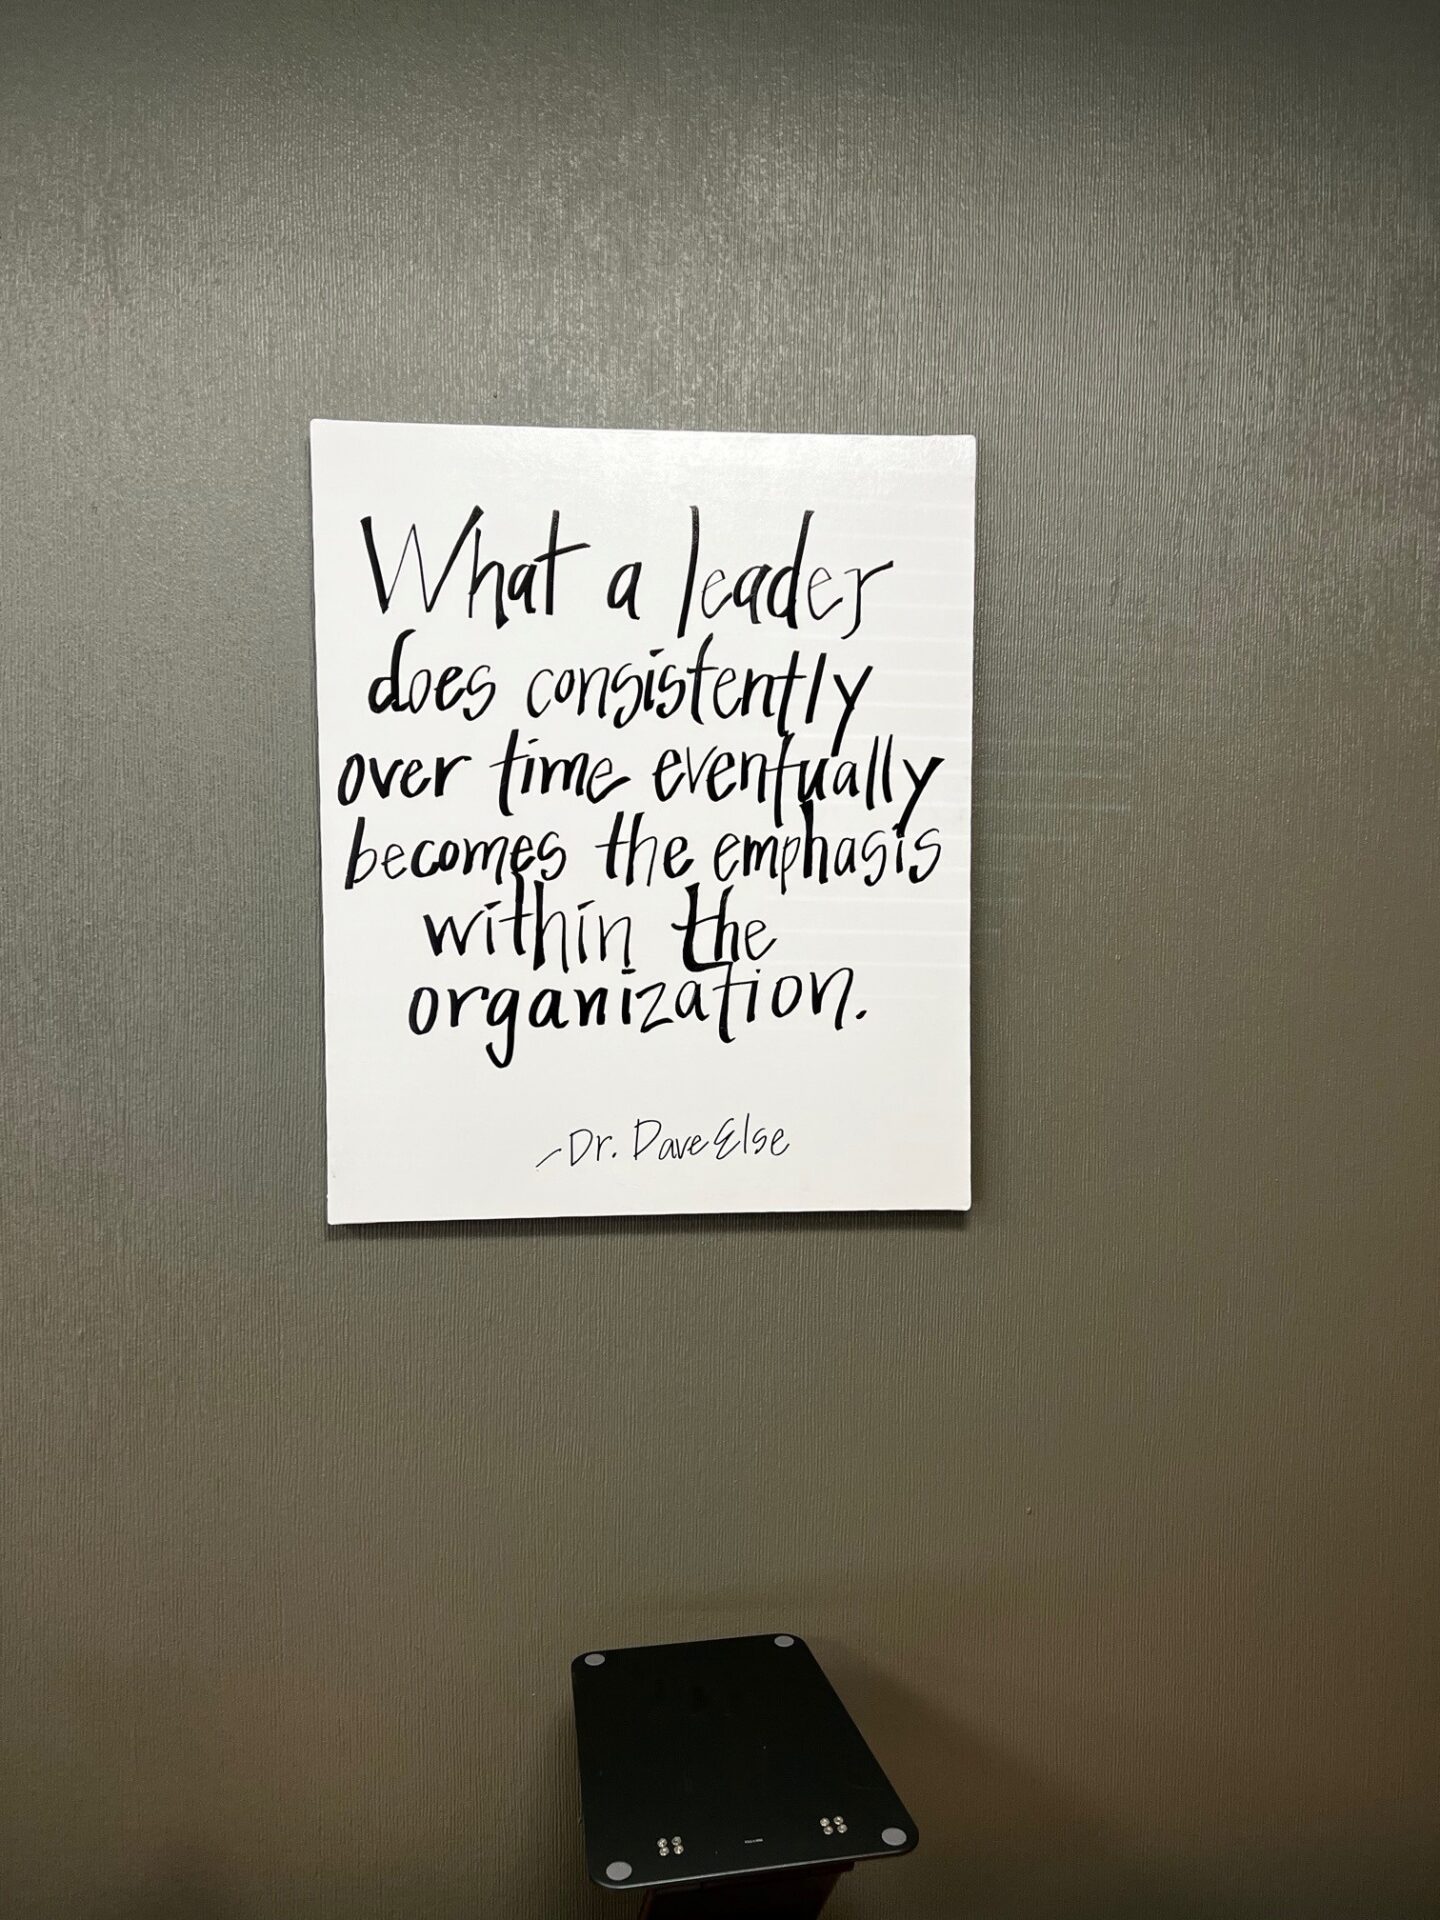 What a leader
does consistently
over time eventually
becomes the emphasis
within the
organization.
-Dr. Dave Else